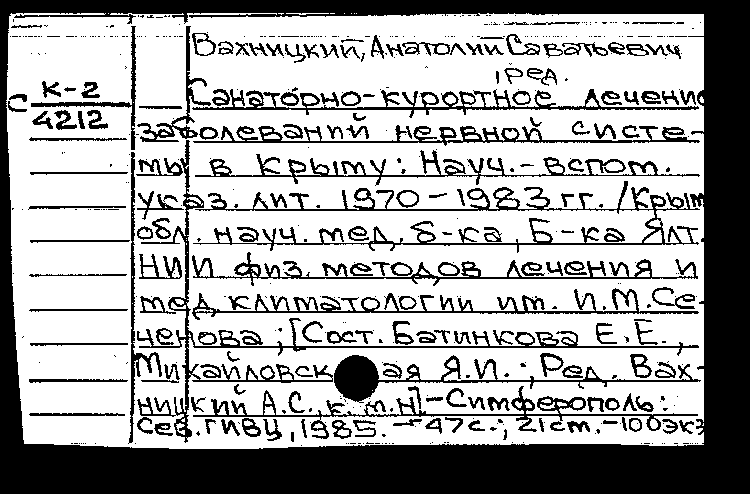 Вахницкий, Анатолий Саватьевич
, ред.
С К-2
4212
Санаторно-курортное лечение
заболеваний нервной систе-
мы в Крыму: Науч.-вспом.
указ. лит. 1970-1983 гг. /Крым
обл. науч. мед. б-ка, Б-ка Ялт.
НИИ физ. методов лечения и
мед. климатологии им. И.М.Се-
ченова; [Сост. Батинкова Е.Е.,
Михайловская Я.И.; Ред. Вах-
ницкий А.С., к.м.н]-Симферополь:
Сев.ГИВЦ, 1985. - 47с.; 21см.-100экз